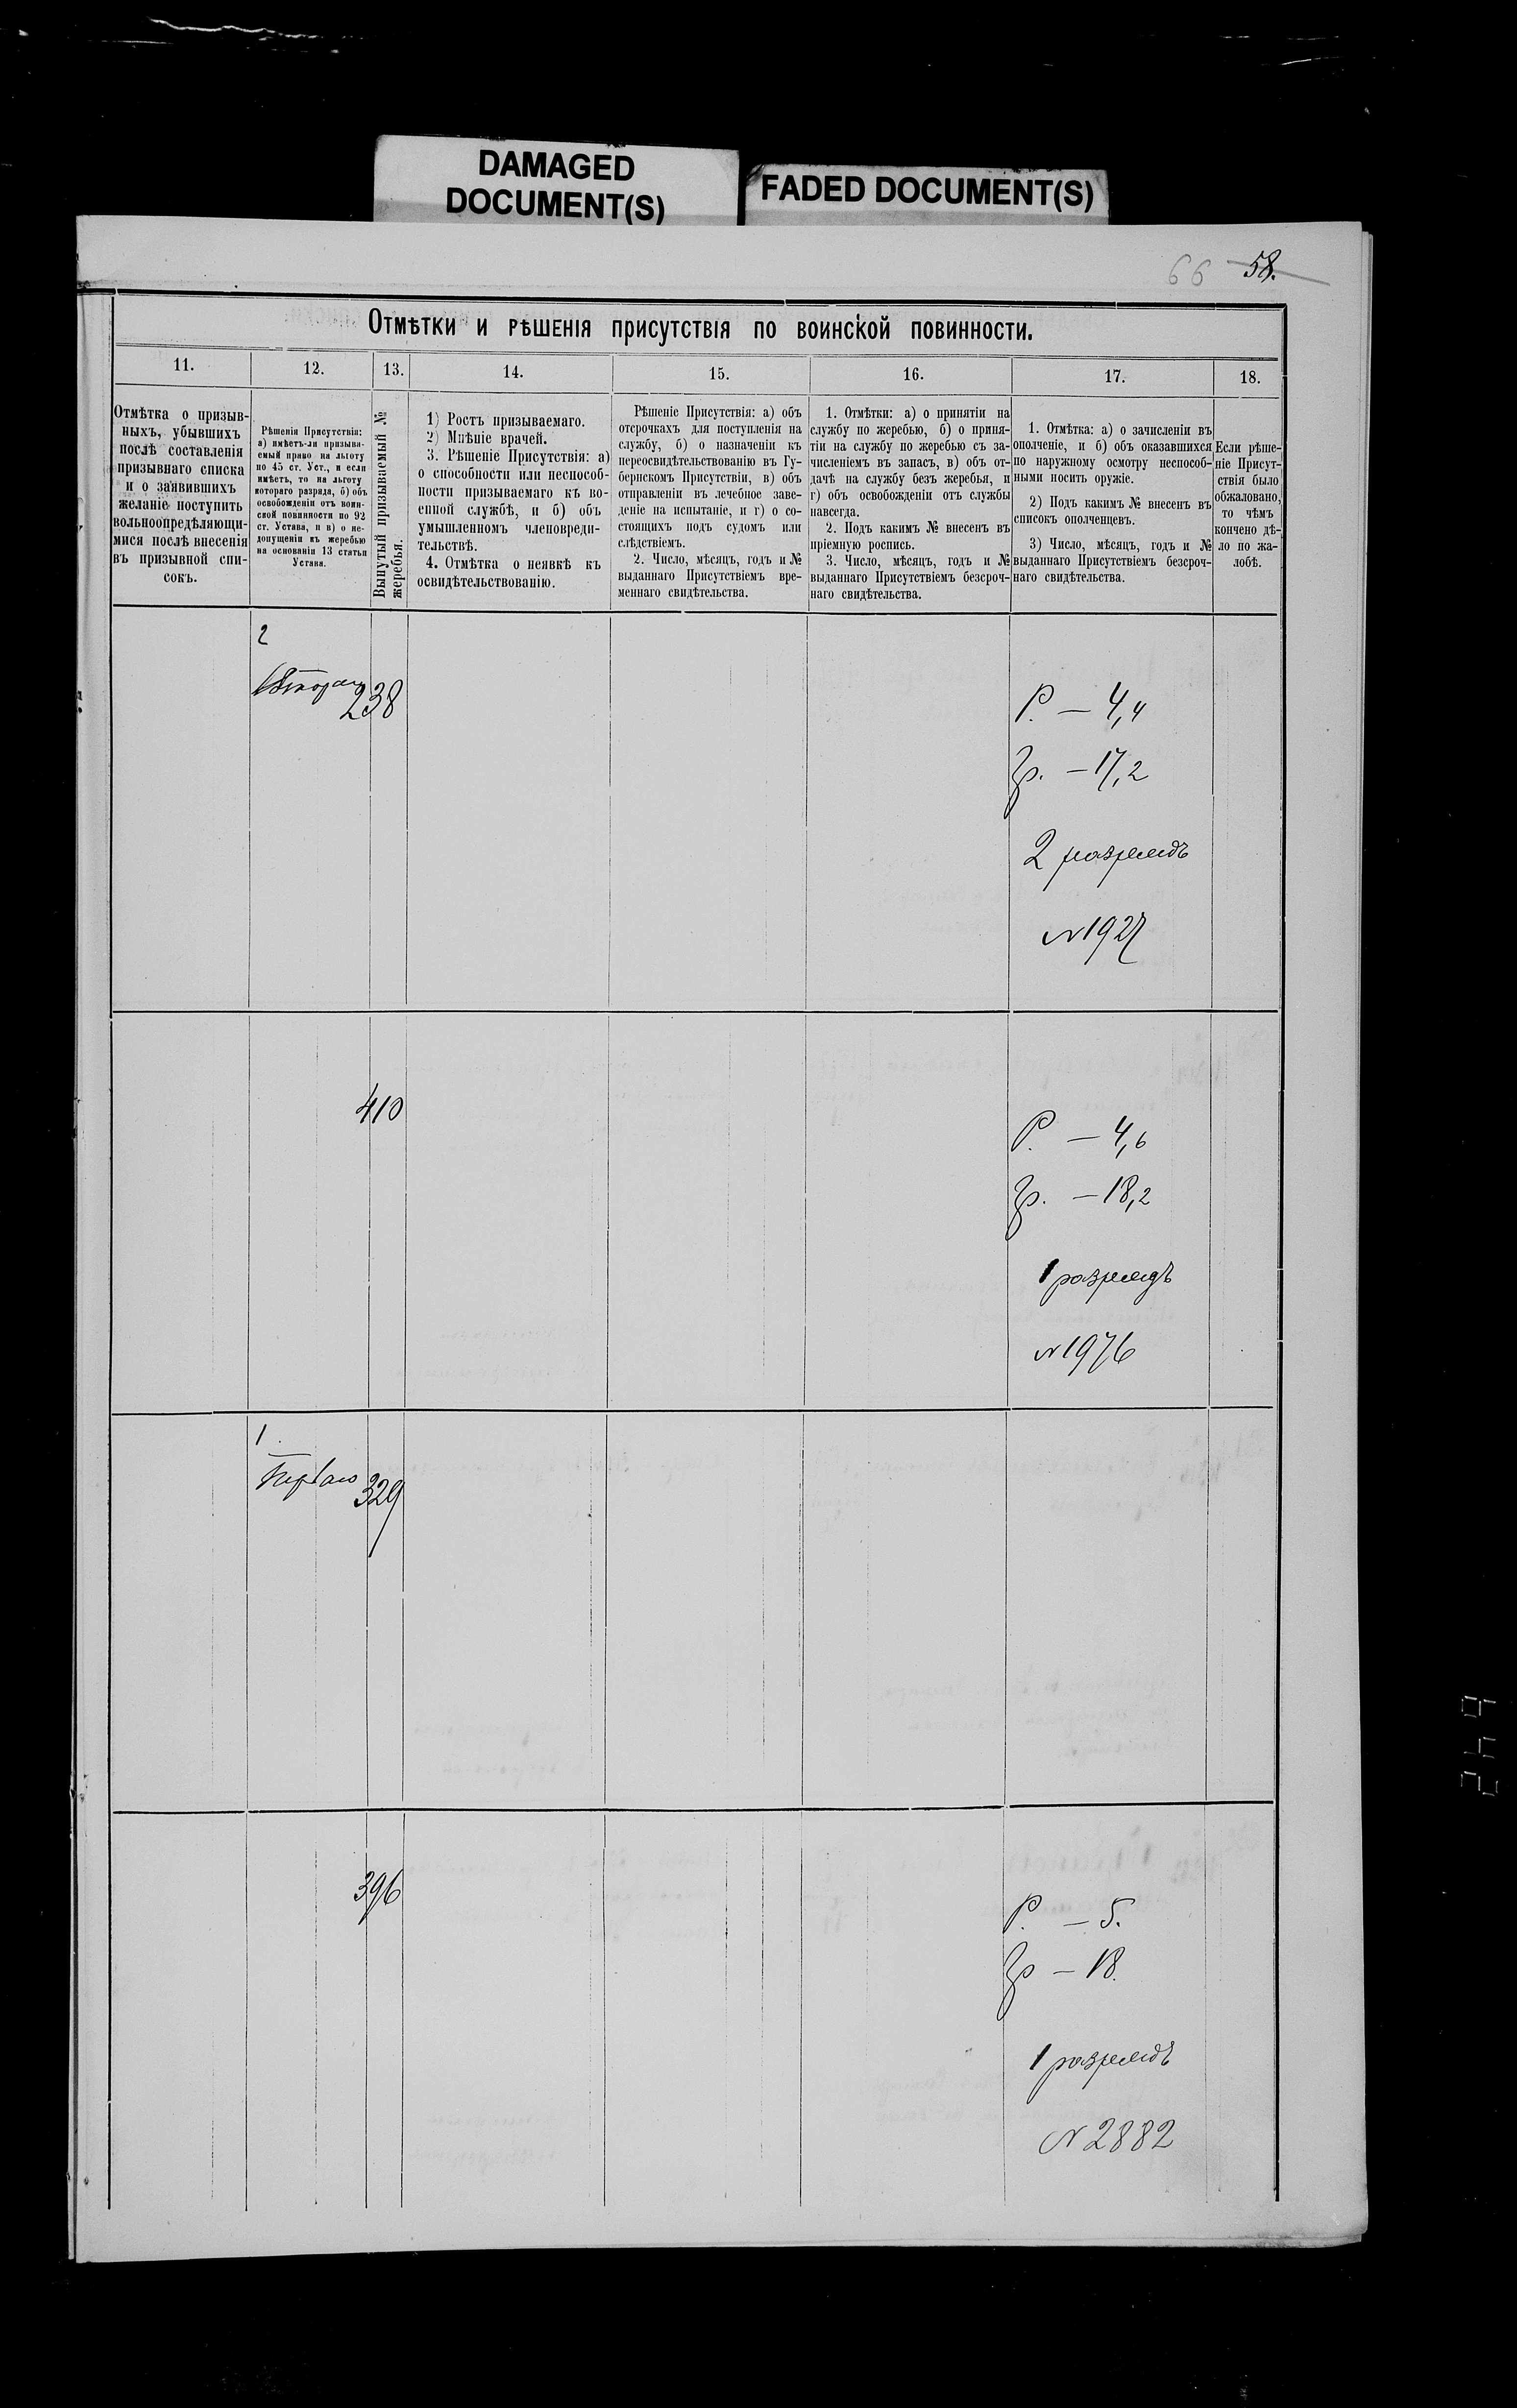 DAMAGED
DOCUMENT(S)
FADED DOCUMENT(S)
66 58.
Отмѣтки и рѣшенія присутствія по воинской повинности.
11. 12. 13. 14. 15. 16. 17. 18.
Отмѣтка о призыв-
ныхъ, убывшихъ
послѣ составленія
призывнаго списка
и о заявившихъ
желаніе поступить
вольноопредѣляющи-
мися послѣ внесенія
въ призывной спи-
сокъ.
Рѣшенія Присутствія:
а) имѣетъ-ли призыва-
емый право на льготу
по 45 ст. Уст., и если
имѣетъ, то на льготу
котораго разряда, б) объ
освобожденіи отъ воин-
ской повинности по 92
ст. Устава, и в) о не-
допущеніи къ жеребью
на основаніи 13 статьи
Устава.
Вынутый призываемый №
жеребья.
1) Ростъ призываемаго.
2) Мнѣніе врачей.
3. Рѣшеніе Присутствія: а)
о способности или неспособ-
ности призываемаго къ во-
енной службѣ, и б) объ
умышленномъ членовреди-
тельствѣ.
4. Отмѣтка о неявкѣ къ
освидѣтельствованію.
Рѣшеніе Присутствія: а) объ
отсрочкахъ для поступленія на
службу, б) о назначеніи къ
переосвидѣтельствованію въ Гу-
бернскомъ Присутствіи, в) объ
отправленіи въ лечебное заве-
деніе на испытаніе, и г) о со-
стоящихъ подъ судомъ или
слѣдствіемъ.
2. Число, мѣсяцъ, годъ и №
выданнаго Присутствіемъ вре-
меннаго свидѣтельства.
1. Отмѣтки: а) о принятіи на
службу по жеребью, б) о приня-
тіи на службу по жеребью съ за-
численіемъ въ запасъ, в) объ от-
дачѣ на службу безъ жеребья, и
г) объ освобожденіи отъ службы
навсегда.
2. Подъ какимъ № внесенъ въ
пріемную роспись.
3. Число, мѣсяцъ, годъ и №
выданнаго Присутствіемъ безсроч-
наго свидѣтельства.
1. Отмѣтка: а) о зачисленіи въ
ополченіе, и б) объ оказавшихся
по наружному осмотру неспособ-
ными носить оружіе.
2) Подъ какимъ № внесенъ въ
списокъ ополченцевъ.
3) Число, мѣсяцъ, годъ и №
выданнаго Присутствіемъ безсроч-
наго свидѣтельства.
Если рѣше-
ніе Присут-
ствія было
обжаловано,
то чѣмъ
кончено дѣ-
ло по жа-
лобѣ.
2
238
Р. — 4,4
Гр. — 17,2
2 разрядъ
№ 1927
410
Р. — 4,6
Гр. — 18,2
1 разрядъ
№ 1976
1
Перваго 329
396
Р. — 5.
Гр — 18.
1 разрядъ
№ 2882
249